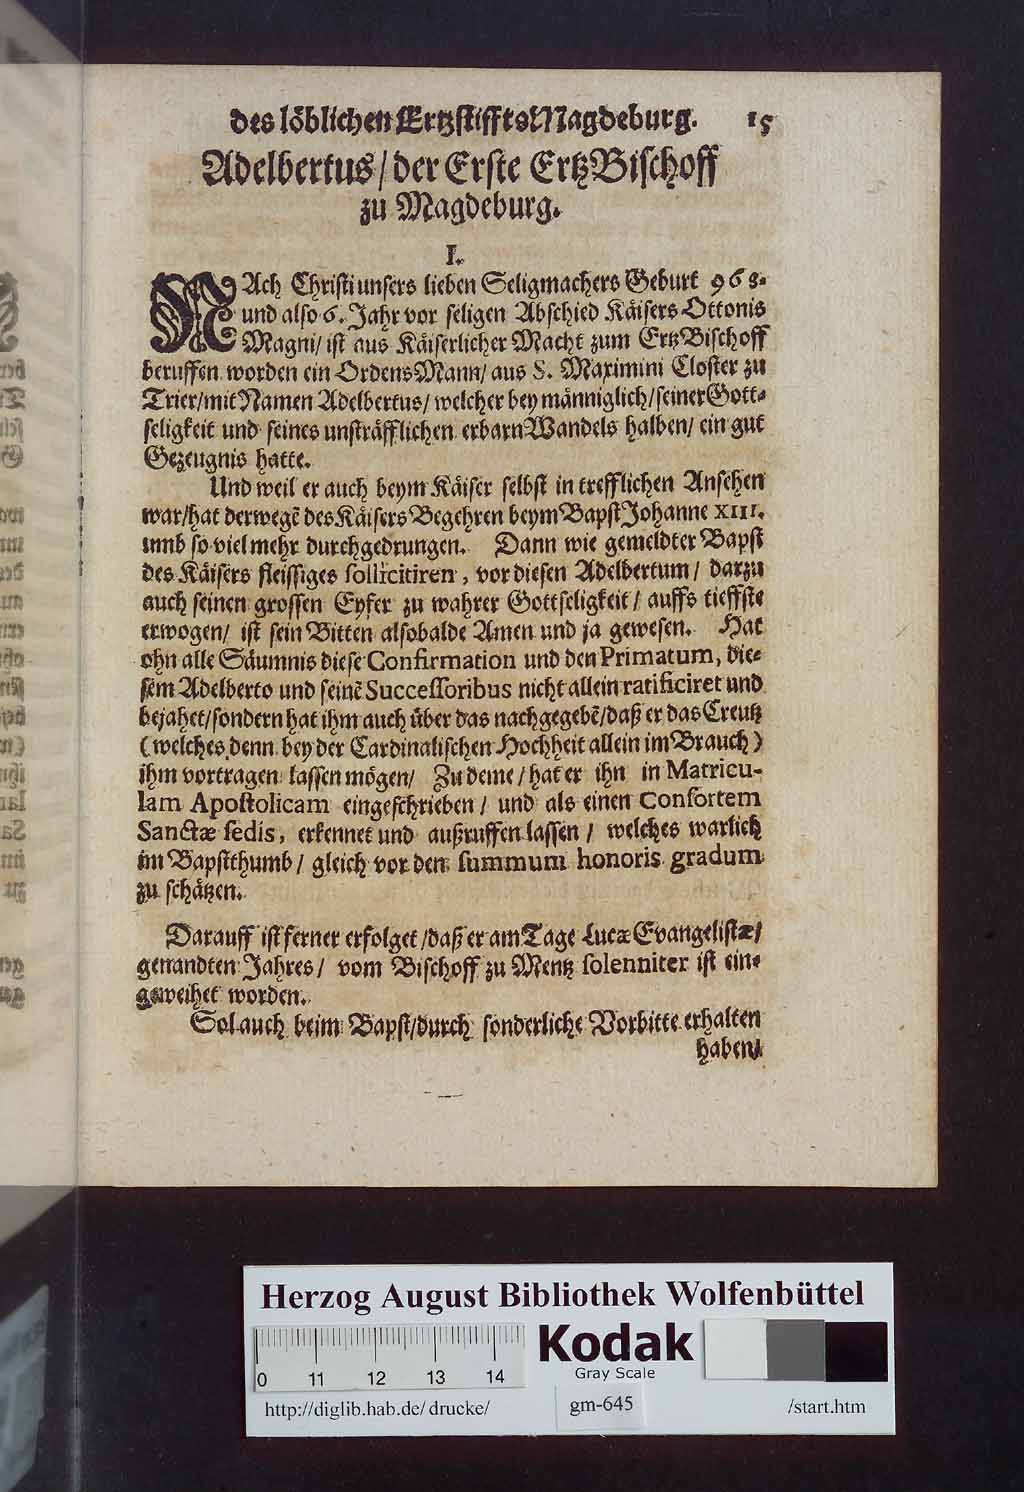 des löblichen Ertzstiffts Magdeburg. 15
Adelbertus/ der Erste ErtzBischoff
zu Magdeburg.
I.
NAch Christi unsers lieben Seligmachers Geburt 968.
und also 6. Jahr vor seligen Abschied Käisers Ottonis
Magni/ ist aus Käiserlicher Macht zum ErtzBischoff
beruffen worden ein OrdensMann/ aus S. Maximini Closter zu
Trier/ mit Namen Adelbertus/ welcher bey männiglich/ seiner Gott-
seligkeit und seines unsträfflichen erbarn Wandels halben/ ein gut
Gezeugnis hatte.
Und weil er auch beym Käiser selbst in trefflichen Ansehen
war/ hat derwegẽ des Käisers Begehren beym Bapst Johanne XIII.
umb so viel mehr durchgedrungen. Dann wie gemeldter Bapst
des Käisers fleissiges sollicitiren, vor diesen Adelbertum/ darzu
auch seinen grossen Eyfer zu wahrer Gottseligkeit/ auffs tieffste
erwogen/ ist sein Bitten alsobalde Amen und ja gewesen. Hat
ohn alle Säumnis diese Confirmation und den Primatum, die-
sem Adelberto und seinẽ Successoribus nicht allein ratificiret und
bejahet/ sondern hat ihm auch über das nachgegebẽ/ daß er das Creutz
(welches denn bey der Cardinalischen Hochheit allein im Brauch)
ihm vortragen lassen mögen/ Zu deme/ hat er ihn in Matricu-
lam Apostolicam eingeschrieben/ und als einen Consortem
Sanctæ sedis, erkennet und außruffen lassen/ welches warlich
im Bapstthumb/ gleich vor den summum honoris gradum
zu schätzen.
Darauff ist ferner erfolget/ daß er am Tage Lucæ Evangelistæ/
genandten Jahres/ vom Bischoff zu Mentz solenniter ist ein-
geweihet worden.
Sol auch beim Bapst/ durch sonderliche Vorbitte erhalten
haben/
Herzog August Bibliothek Wolfenbüttel
0 11 12 13 14
Kodak
Gray Scale
http://diglib.hab.de/ drucke/ gm-645 /start.htm